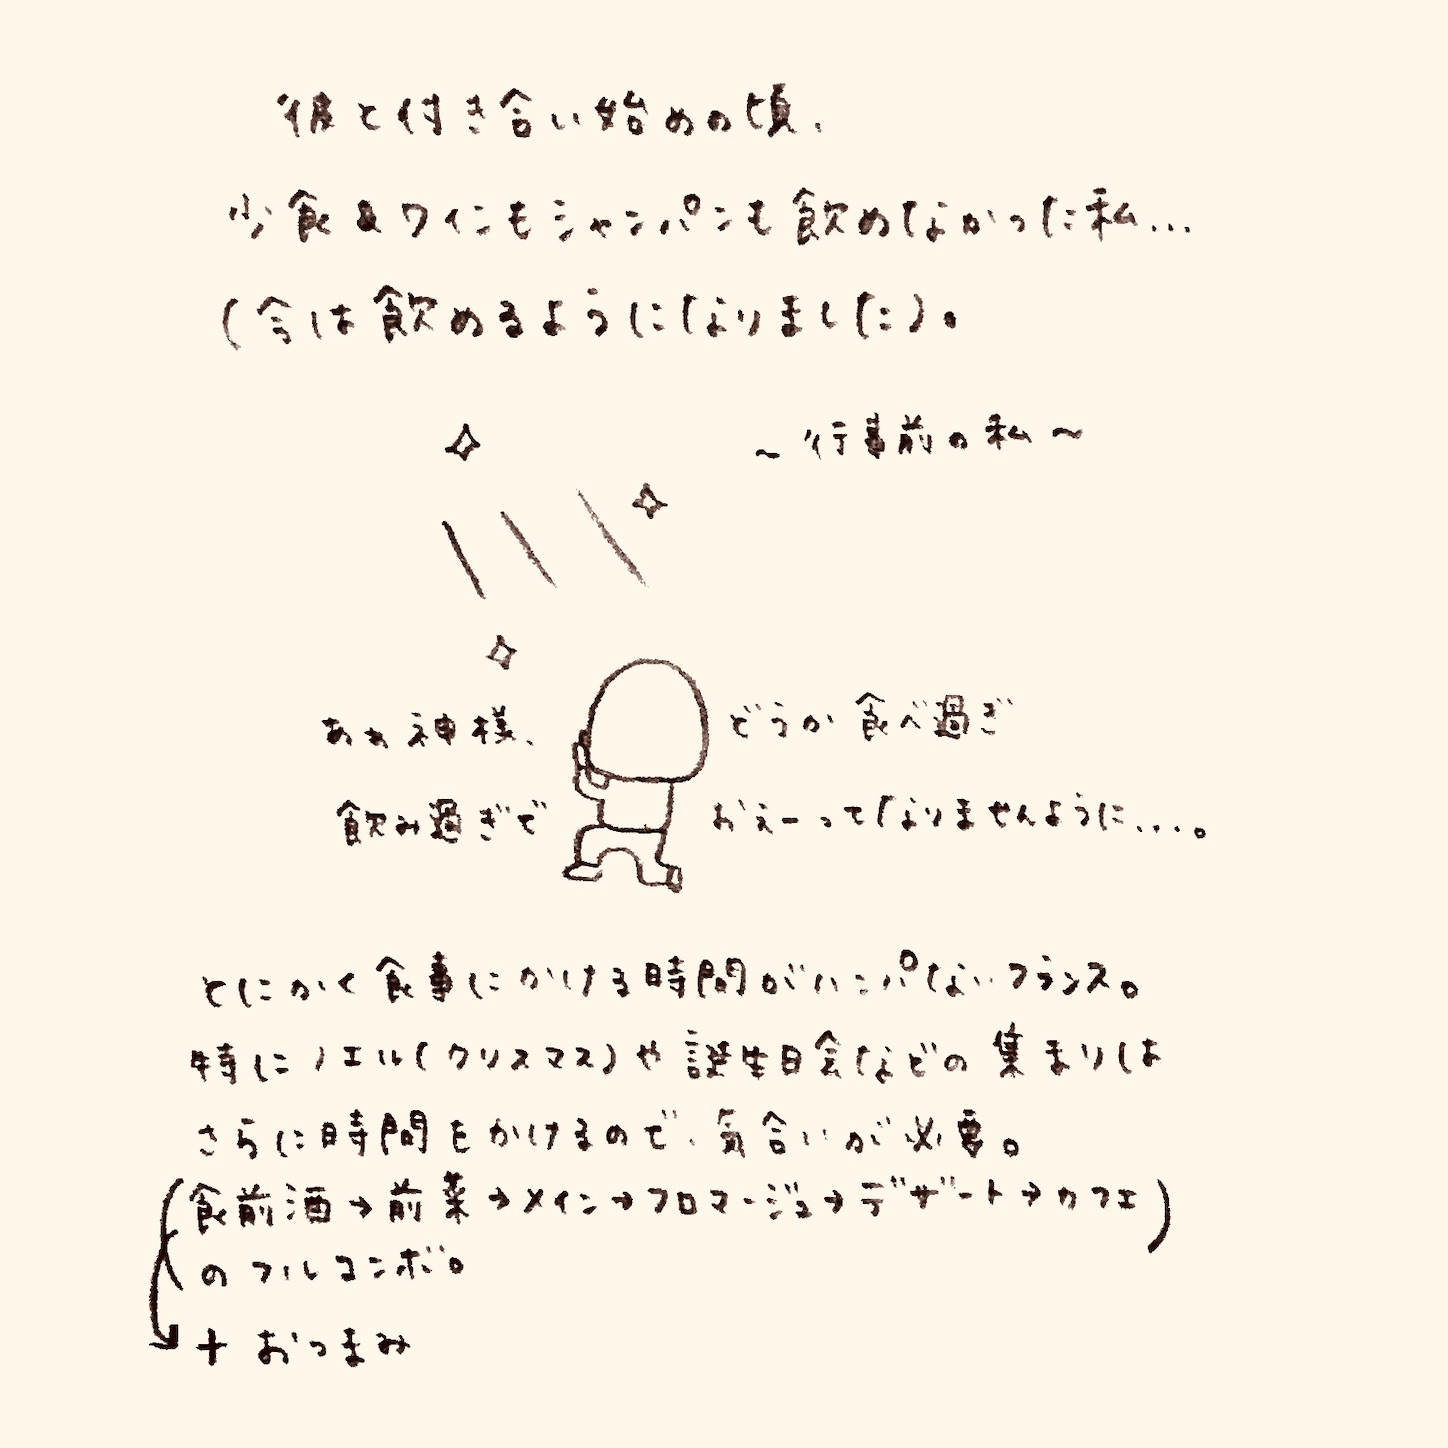 彼と付き合い始めの頃、
少食&ワインもシャンパンも飲めなかった私...
(今は飲めるようになりました)。
~行事前の私~
あぁ神様、どうか食べ過ぎ
飲み過ぎでおえーってなりませんように....。
とにかく食事にかける時間がハンパないフランス。
特にノエル(クリスマス)や誕生日会などの集まりは
さらに時間をかけるので、気合いが必要。
(食前酒→前菜→メイン→フロマージュ→デザート→カフェ)
のフルコンボ。
+おつまみ